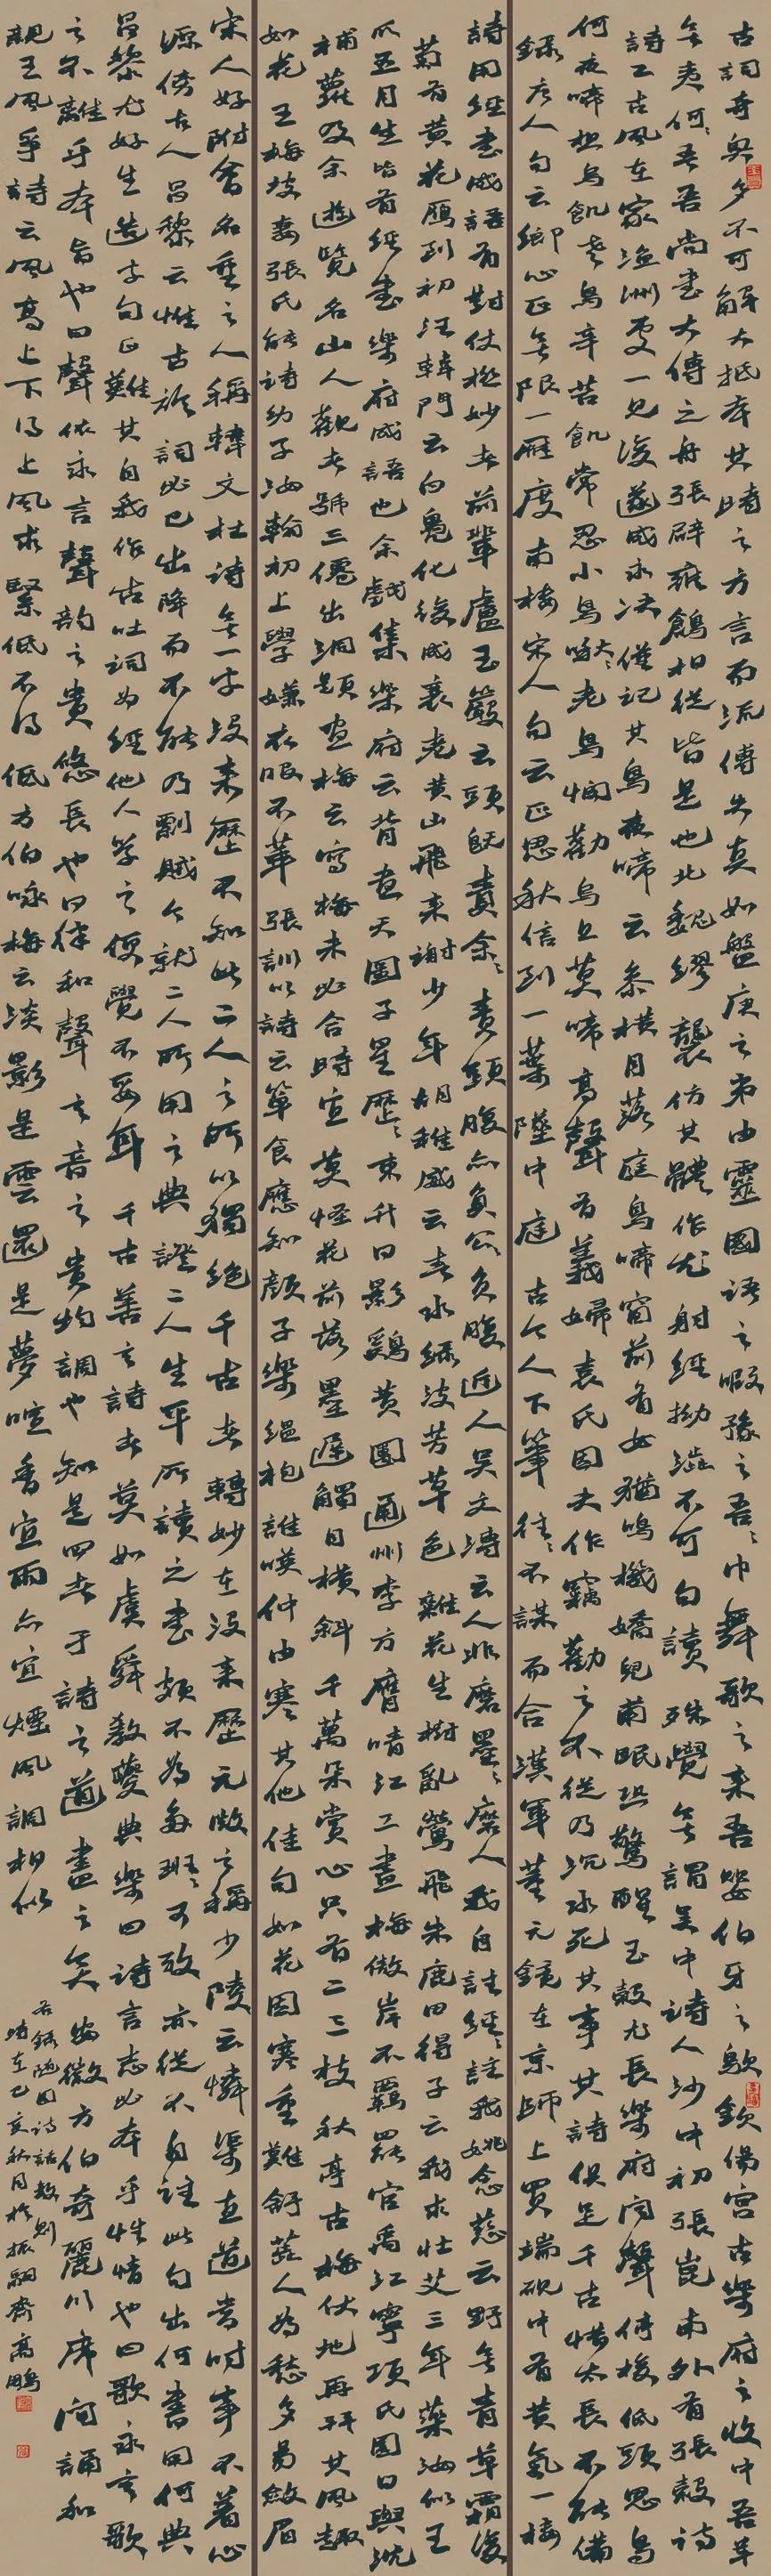 古詞奇奥多不可解大抵本其時之方言而流傳失真如盤庚之弔由靈國語之暇豫之吾吾巾舞歌之来吾嬰伯牙之歍欽傷宮古樂府之收中吾羊
無夷何何吾吾尚書大傳之舟張辟雍鶬相從皆是也北魏繆襲仿其體作尤射經拗澁不可句讀殊覺無謂吴中詩人沙中初張崑南外有張縠詩
詩工古風在家漁洲受一見後遂成永决僅記其烏夜啼云參橫月落庭烏啼窗前有女猶鳴機嬌兒甫眠恐驚醒玉縠尤長樂府聞聲倚梭低頭思烏
何夜啼想烏飢老烏辛苦飢常忍小烏啞啞老烏憫勸烏且莫啼高聲有義婦袁氏因夫作竊勸之不從乃沉水死其事其詩俱足千古惜太長不能備
錄唐人句云鄉心正無限一雁度南樓宋人句云正思秋信到一葉墮中庭古今人下筆往往不謀而合漢軍董元鏡在京師上買端硯中有黄氣一樓
詩用經書成語有對仗極妙者前輩盧玉巖云頭既責余余責頭腹亦負公公負腹近人吴文溥云人非磨墨墨磨人我自註經經註我姚念慈云野無青草霜後
菊有黄花雁到初汪韓門云白鳧化後成衰老黄山飛来謝少年胡稚威云春水綠波芳草色雜花生樹亂鶯飛朱鹿田得子云我求壮艾三年藥汝似王
瓜五月生皆有經書樂府成語也余戲集樂府云背畫天圖子星歷歷東升日影鷄黄團通州李方膺晴江工畫梅傲岸不羈罷官寓江寧項氏園日與沈
補蘿及余遊覽名山人觀者號三僊出洞題畫梅云寫梅未必合時宜莫怪花前落墨遲觸目橫斜千萬朵賞心只有二三枝秋亭古梅伏地再拜其風趣
如花王梅坡妻張氏能詩幼子汝翰初上學嫌衣服不華張訓以詩云簞食應知顔子樂緼袍誰嘆仲由寒其他佳句如花因寒重難舒蕊人為愁多易斂眉
宋人好附會名重之人稱韓文杜詩無一字没来歷不知此二人之所以獨絕千古者轉妙在没来歷元微之稱少陵云憐渠直道當時事不着心
源傍古人昌黎云惟古於詞必已出降而不能乃剽賊今就二人所用之典證二人生平所讀之書頗不為多班班可考亦從不自註此句出何書用何典
昌黎尤好生造字句正難其自我作古吐詞為經他人學之便覺不妥耳千古善言詩者莫如虞舜教夔典樂曰詩言志必本乎性情也曰歌永言歌
之不離乎本旨也曰聲依永言聲韵之貴悠長也曰律和聲言音之貴均調也知是四者于詩之道盡之矣安徽方伯奇麗川席间誦和
親王風爭詩云風高上下得上風求緊低不得低方伯咏梅云淡影是雲還是夢喧香宜雨亦宜煙風調相似
右録隨園詩話數則
時在己亥秋月於振翮齋高鵬